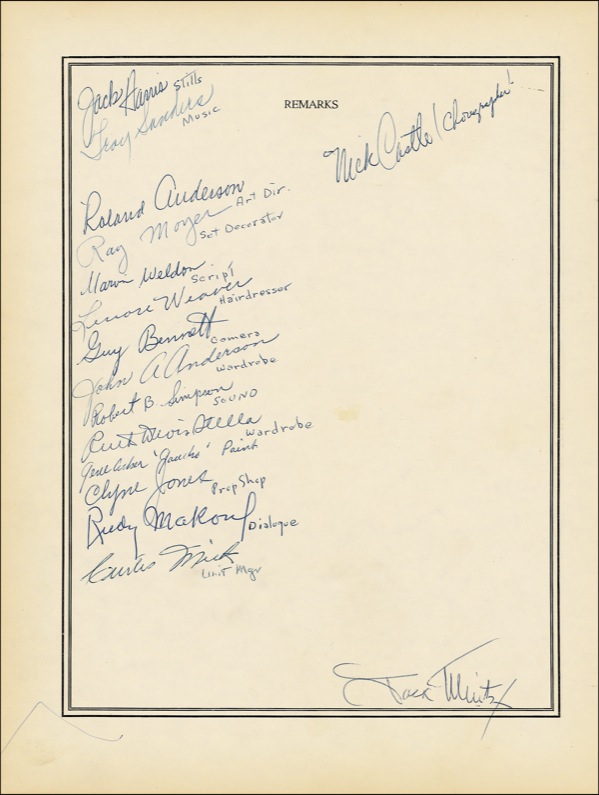 REMARKS
Jack Harris Stills
Troy Sanders
Music
"Nick Castle (Choreographer)
Roland Anderson
Art Dir.
Ray Moyer
Set Decorator
Marvin Weldon
Script
Lenore Weaver
Hairdresser
Guy Bennett
Camera
John A Anderson
Wardrobe
Robert B. Simpson
SOUND
Ruth Davis Stella
Wardrobe
Gene "Gaucho" Paint
Clyne Jones
Prop Shop
Rudy Makoul
Dialogue
Curtis Mick
Unit Mgr
Jack Mintz